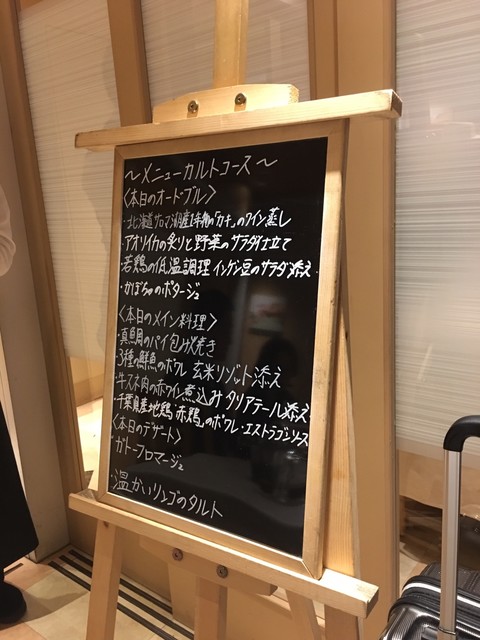 ～メニューカルトコース～
〈本日のオードブル〉
・北海道サロマ湖産1年物の「カキ」のワイン蒸し
・アオリイカの炙りと野菜のサラダ仕立て
・若鶏の低温調理 インゲン豆のサラダ添え
・かぼちゃのポタージュ
〈本日のメイン料理〉
・真鯛のパイ包み焼き
・3種の鮮魚のポワレ 玄米リゾット添え
・牛スネ肉の赤ワイン煮込み タリアテール添え
・千葉県産地鶏「赤鶏」のポワレ・エストラゴンソース
〈本日のデザート〉
・ガトーフロマージュ
・温かいリンゴのタルト